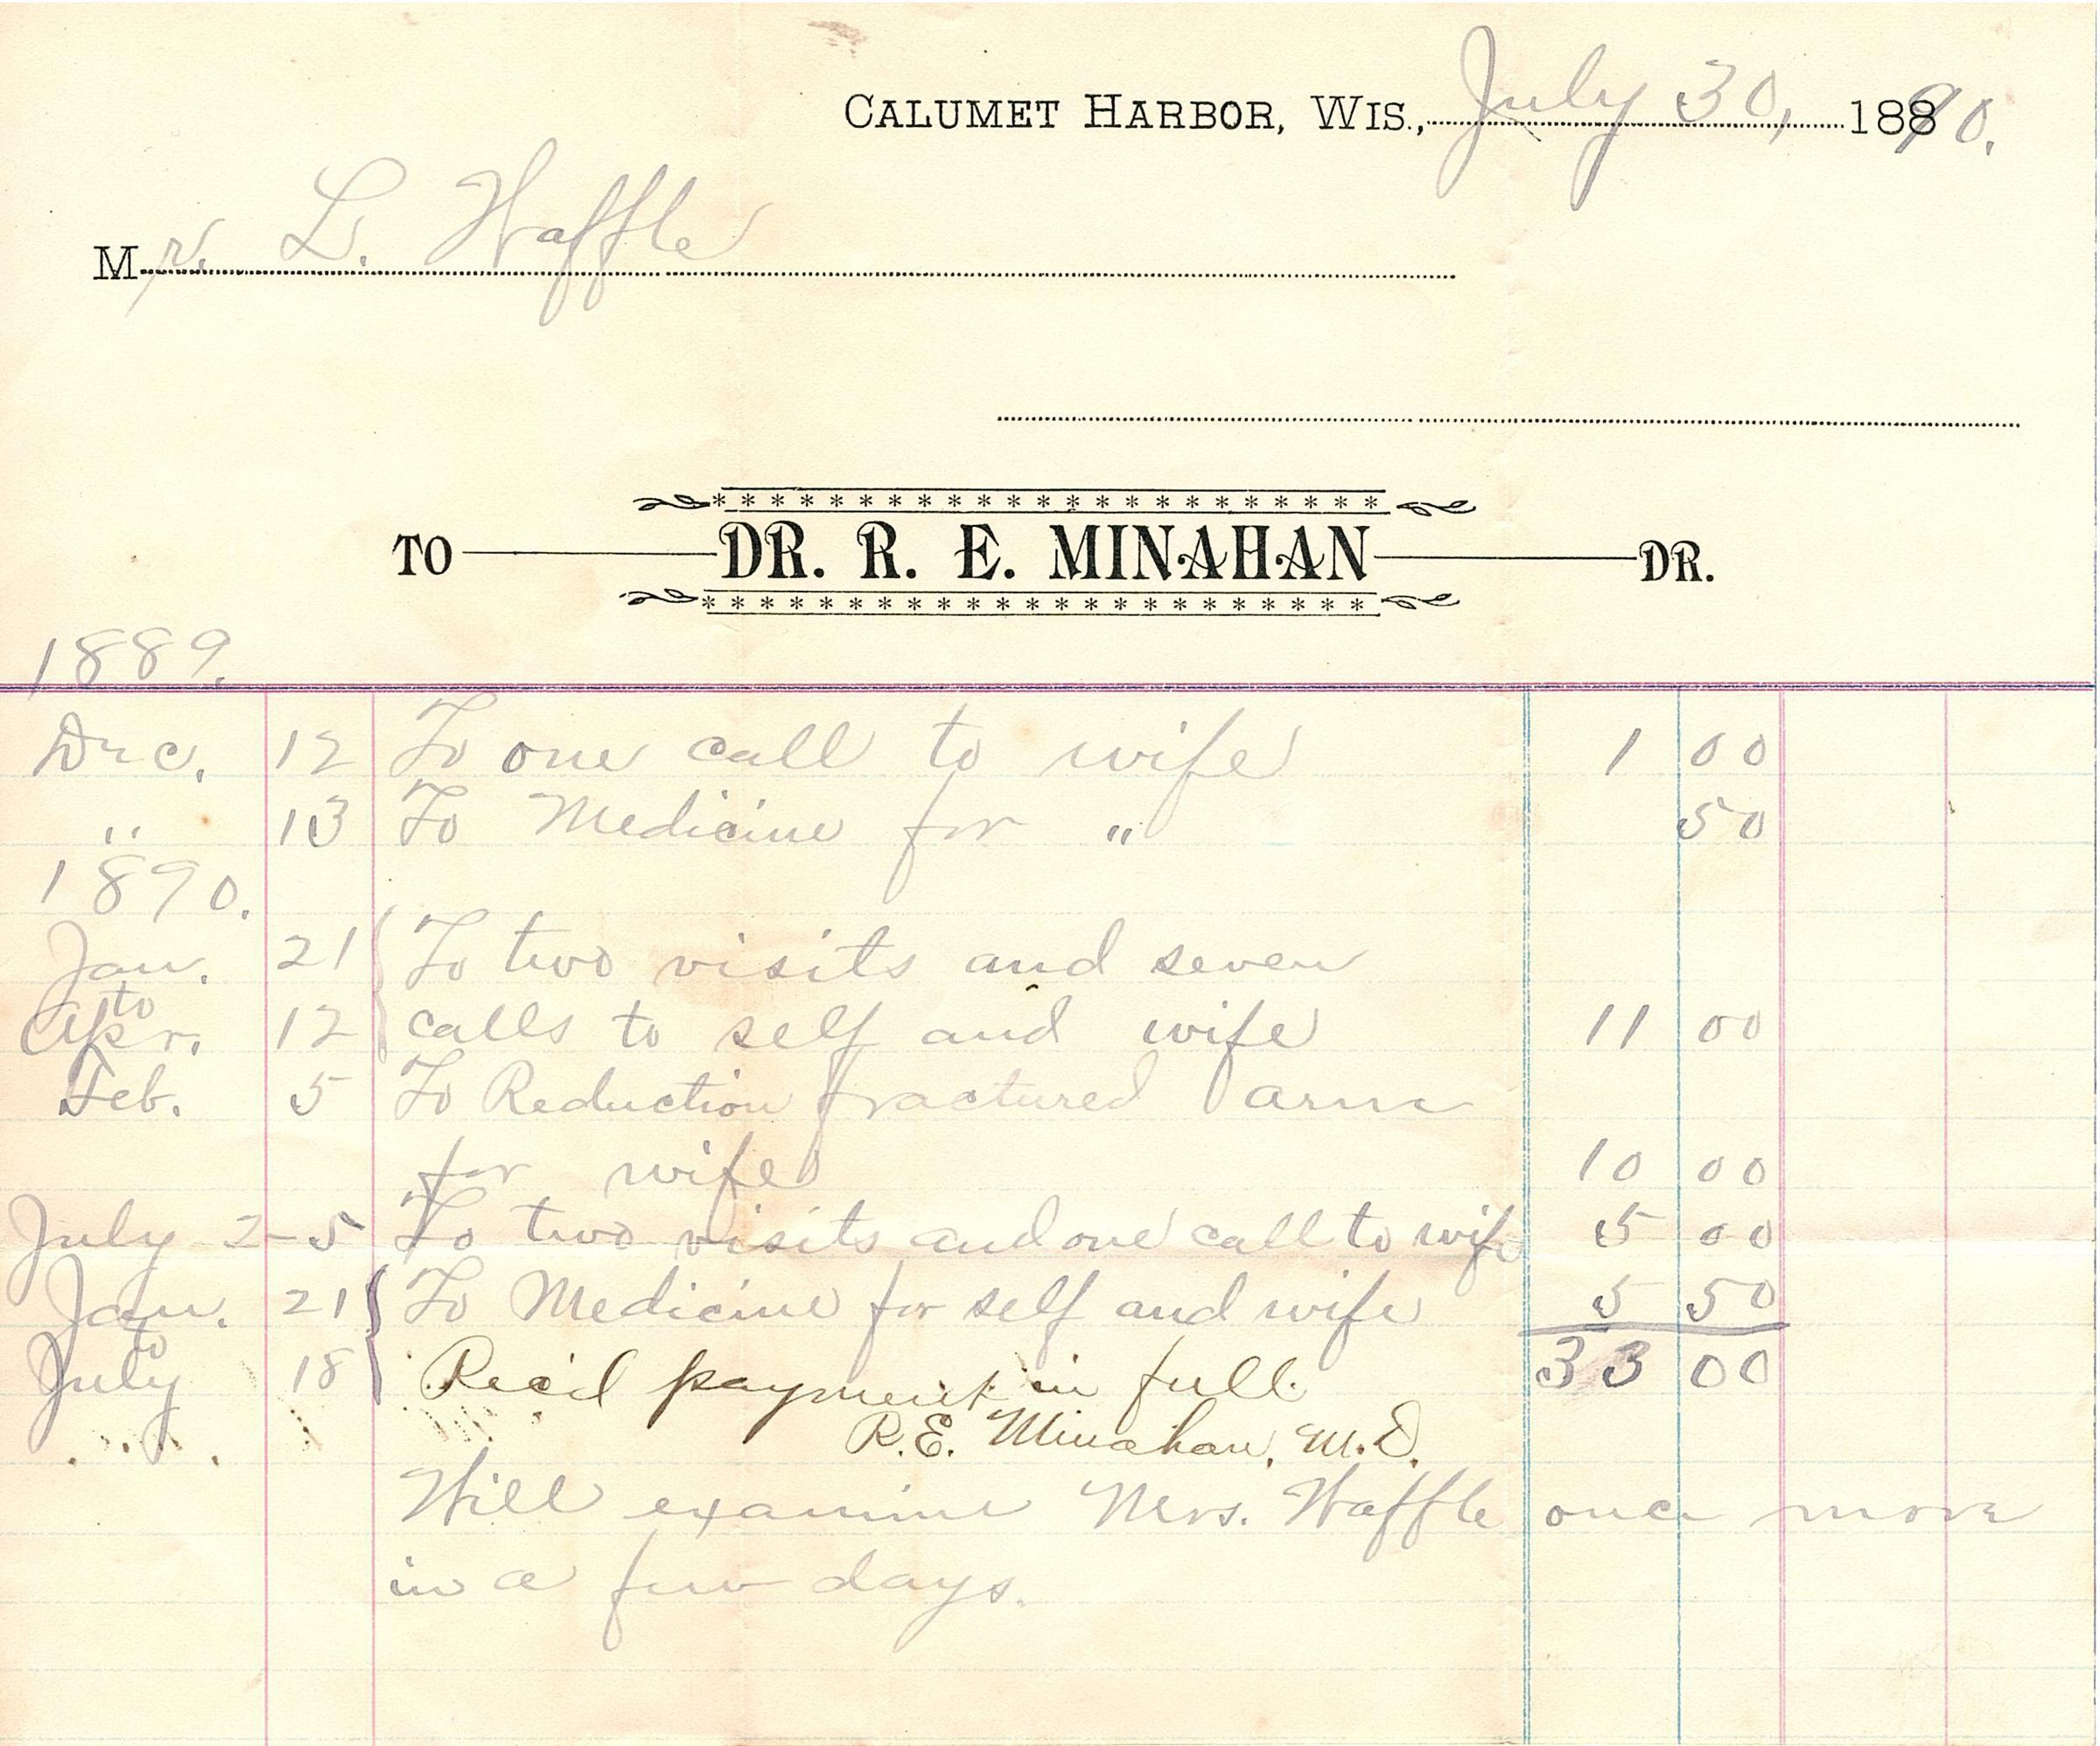 CALUMET HARBOR, WIS., July 30, 1890.
Mr. L. Waffle
TO DR. R. E. MINAHAN DR.
1889.
Dec. 12 To one call to wife 1 00
" 13 To Medicine for " 50
1890.
Jan. 21 To two visits and seven
to
Apr. 12 calls to self and wife 11 00
Feb. 5 To Reduction fractured arm
for wife 10 00
July 2-5 To two visits and one call to wife 5 00
Jan. 21 To Medicine for self and wife 5 50
to
July 18 Rec'd payment in full 33 00
R.E. Minahan, M.D.
Will examine Mrs. Waffle once more
in a few days.